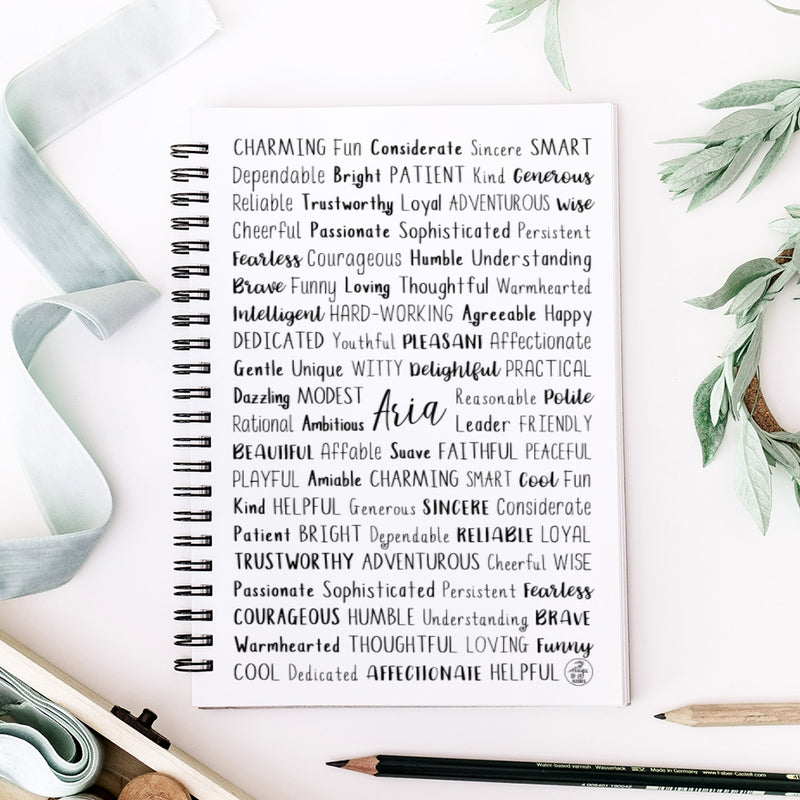 CHARMING Fun Considerate Sincere SMART
Dependable Bright PATIENT Kind Generous
Reliable Trustworthy Loyal ADVENTUROUS Wise
Cheerful Passionate Sophisticated Persistent
Fearless Courageous Humble Understanding
Brave Funny Loving Thoughtful Warmhearted
Intelligent HARD-WORKING Agreeable Happy
DEDICATED Youthful PLEASANT Affectionate
Gentle Unique WITTY Delightful PRACTICAL
Dazzling MODEST Reasonable Polite
Aria
Rational Ambitious Leader FRIENDLY
BEAUTIFUL Affable Suave FAITHFUL PEACEFUL
PLAYFUL Amiable CHARMING SMART Cool Fun
Kind HELPFUL Generous SINCERE Considerate
Patient BRIGHT Dependable RELIABLE LOYAL
TRUSTWORTHY ADVENTUROUS Cheerful WISE
Passionate Sophisticated Persistent Fearless
COURAGEOUS HUMBLE Understanding BRAVE
Warmhearted THOUGHTFUL LOVING Funny
COOL Dedicated AFFECTIONATE HELPFUL
Water-based varnish Wasserlack Made in Germany www.Faber-Castell.com